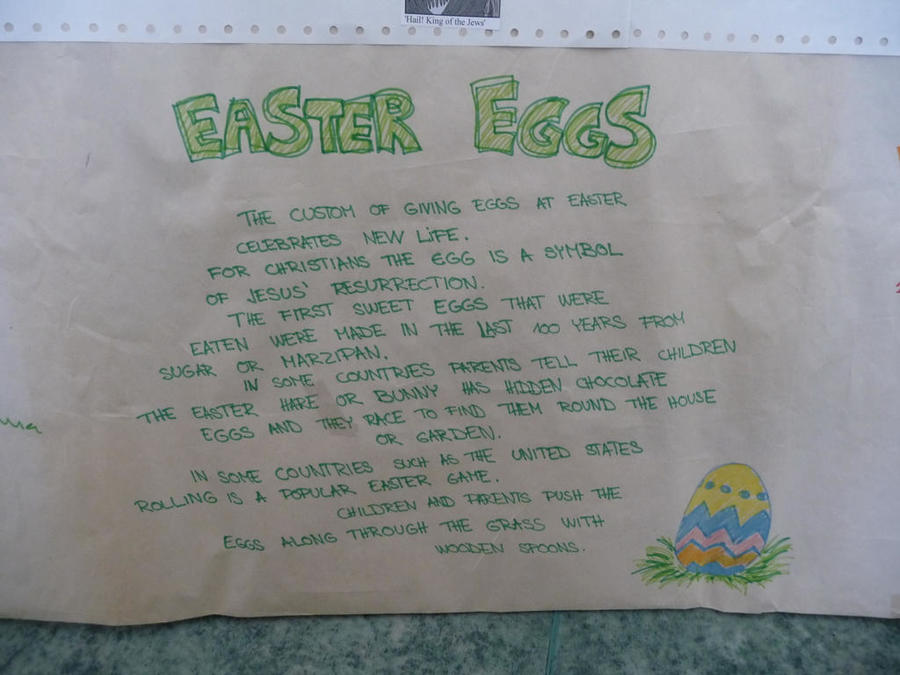 'Hail! King of the Jews'
EASTER EGGS
THE CUSTOM OF GIVING EGGS AT EASTER
CELEBRATES NEW LIFE.
FOR CHRISTIANS THE EGG IS A SYMBOL
OF JESUS' RESURRECTION.
THE FIRST SWEET EGGS THAT WERE
EATEN WERE MADE IN THE LAST 100 YEARS FROM
SUGAR OR MARZIPAN.
IN SOME COUNTRIES PARENTS TELL THEIR CHILDREN
THE EASTER HARE OR BUNNY HAS HIDDEN CHOCOLATE
EGGS AND THEY RACE TO FIND THEM ROUND THE HOUSE
OR GARDEN.
IN SOME COUNTRIES SUCH AS THE UNITED STATES
ROLLING IS A POPULAR EASTER GAME.
CHILDREN AND PARENTS PUSH THE
EGGS ALONG THROUGH THE GRASS WITH
WOODEN SPOONS.